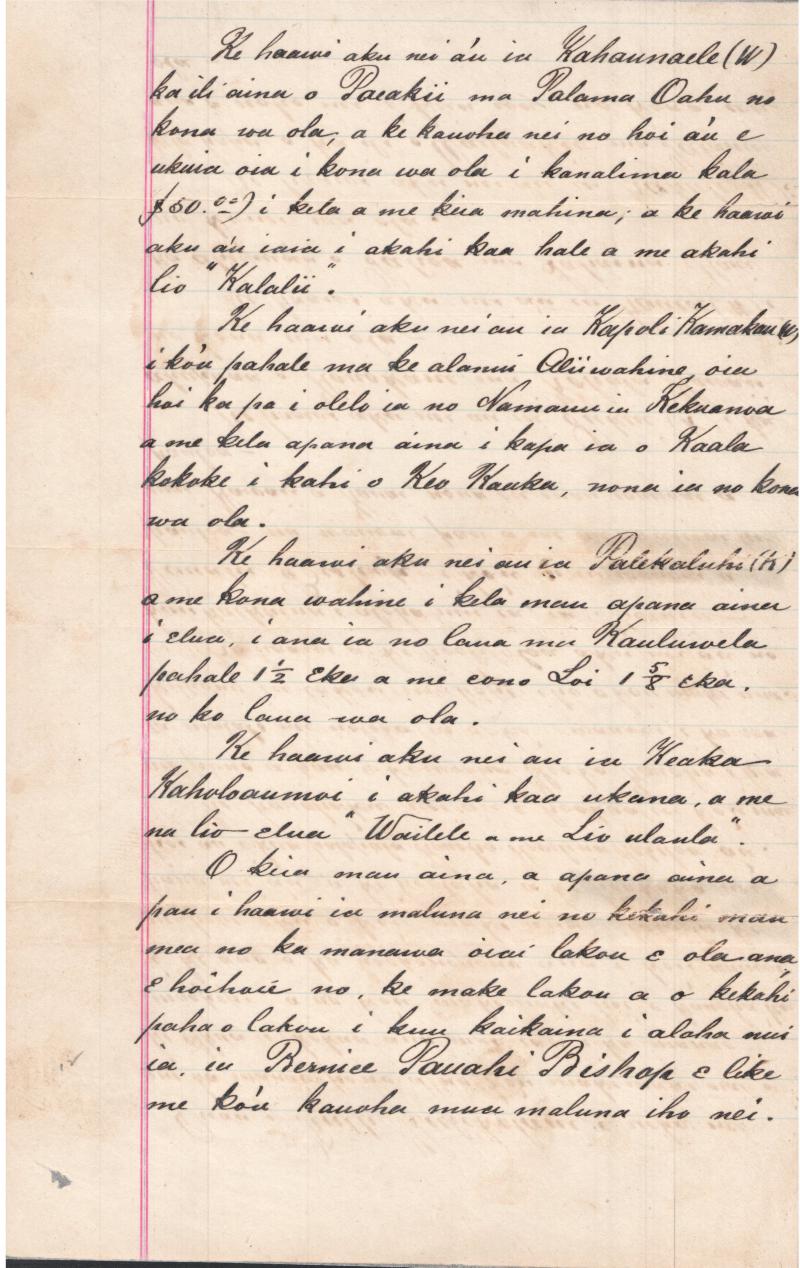 Ke haawi aku nei a'u ia Kahaunaele (W)
ka ili aina o Paeakii ma Palama Oahu no
kona wa ola, a ke kauoha nei no hoi a'u e
ukuia oia i kona wa ola i kanalima kala
($50.00) i kela a me keia mahina; a ke haawi
aku a'u iaia i akahi kaa hale a me akahi
lio "Kalalii".
Ke haawi aku nei au ia Kapoli Kamakau (W)
i ko'u pahale ma ke alanui Aliiwahine, oia
hoi ka pa i olelo ia no Namauu ia Kekuanoa
a me kela apana aina i kapa ia o Kaala
kokoke i kahi o Keo Kaaka, nona ia no kona
wa ola.
Ke haawi aku nei au ia Palekaluhi (K)
a me kona wahine i kela mau apana aina
i elua, i ana ia no laua ma Kauluwela
pahale 1 1/2 eka a me eono Loi 1 5/8 eka.
no ko laua wa ola.
Ke haawi aku nei au ia Keaka
Kaholoaumoi i akahi kaa ukana, a me
na lio elua "Wailele a me Lio ulaula".
O keia mau aina, a apana aina a
pau i haawi ia maluna nei no kekahi mau
mea no ka manawa oiai lakou e ola ana
E hoihoiē no, ke make lakou a o kekahi
paha o lakou i kuu kaikaina i aloha nui
ia, ia Bernice Pauahi Bishop e like
me ko'u kauoha mua maluna iho nei.